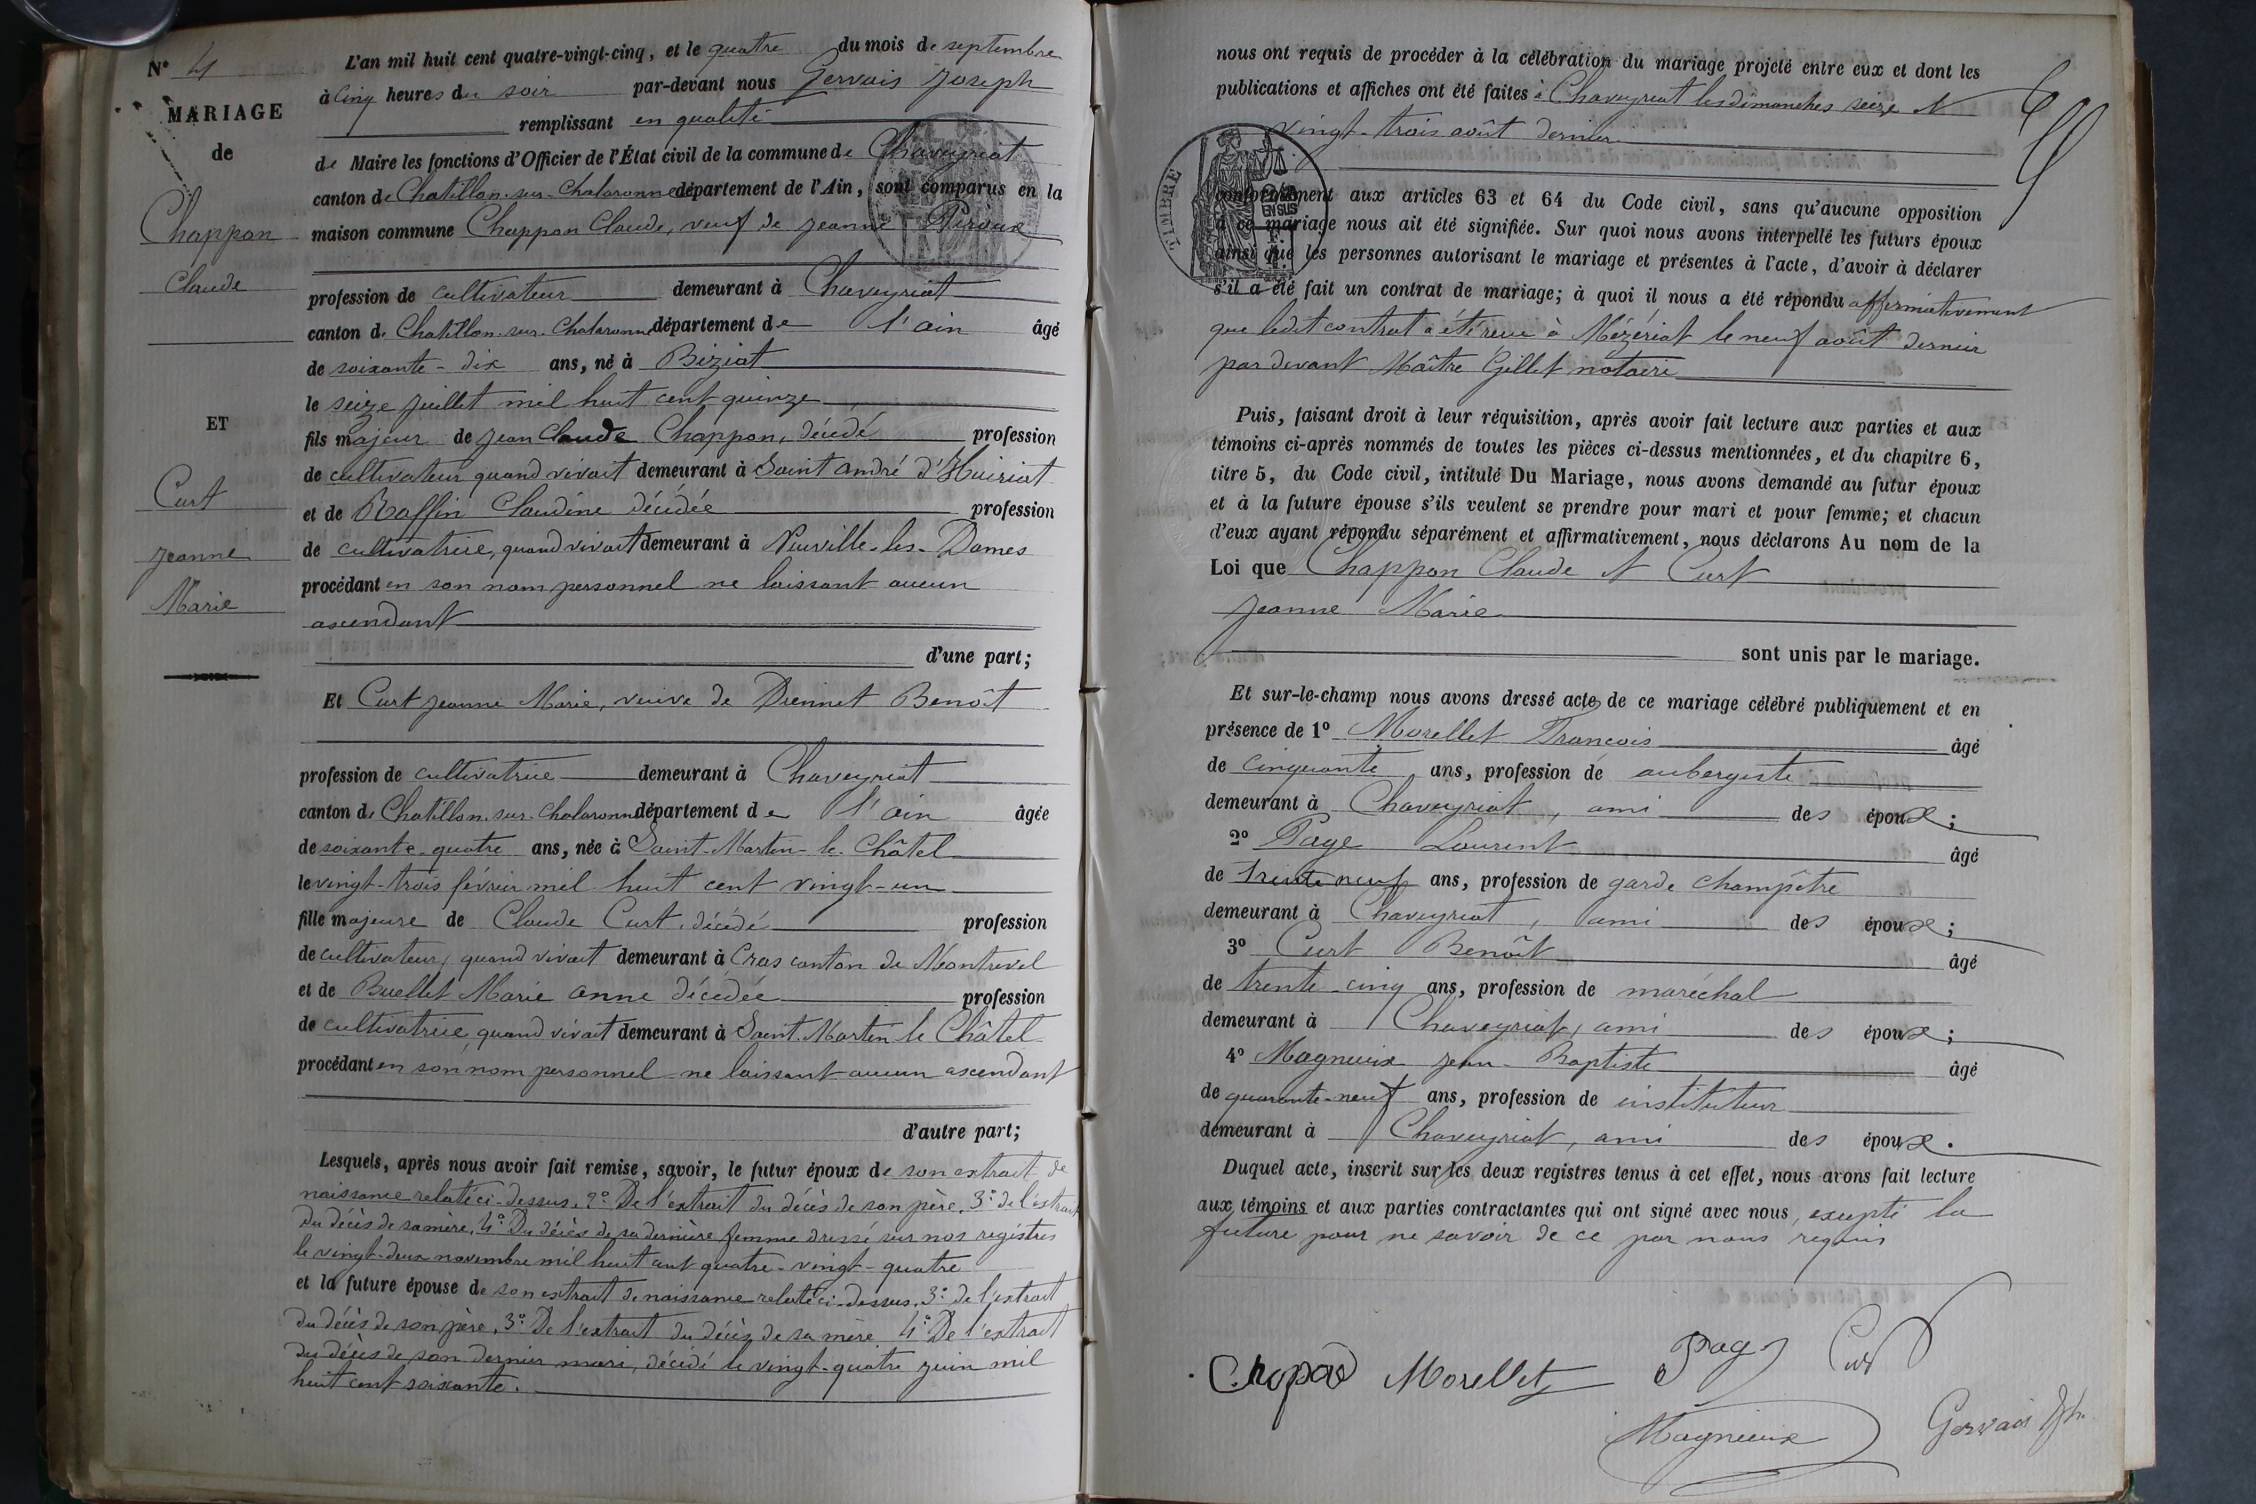 N° 4
MARIAGE
de
Chappon
Claude
ET
Curt
Jeanne
Marie
L'an mil huit cent quatre-vingt-cinq, et le quatre du mois de septembre
à cinq heures du soir par-devant nous Gervais Joseph
remplissant en qualité
de Maire les fonctions d'Officier de l'État civil de la commune de Chaveyriat
canton de Chatillon-sur-Chalaronne département de l'Ain, sont comparus en la
maison commune Chappon Claude, veuf de Jeanne Piroux
profession de cultivateur demeurant à Chaveyriat
canton de Chatillon-sur-Chalaronne département de l'ain âgé
de soixante-dix ans, né à Biziat
le seize juillet mil huit cent quinze
fils majeur de Jean Claude Chappon, décédé profession
de cultivateur quand vivait demeurant à Saint André d'Huiriat
et de Raffin Claudine décédée profession
de cultivatrice, quand vivait demeurant à Neuville-les-Dames
procédant en son nom personnel ne laissant aucun
ascendant
d'une part;
Et Curt Jeanne Marie, veuve de Diennet Benoît
profession de cultivatrice demeurant à Chaveyriat
canton de Chatillon-sur-Chalaronne département de l'ain âgée
de soixante-quatre ans, née à Saint-Martin-le-Châtel
le vingt-trois février mil huit cent vingt-un
fille majeure de Claude Curt, décédé profession
de cultivateur, quand vivait demeurant à Cras canton de Montrevel
et de Buellet Marie Anne décédée profession
de cultivatrice quand vivait demeurant à Saint-Martin le Châtel
procédant en son nom personnel ne laissant aucun ascendant
d'autre part;
Lesquels, après nous avoir fait remise, savoir, le futur époux de son extrait de
naissance relaté ci-dessus, 2° De l'extrait du décès de son père, 3° de l'extrait
du décès de sa mère, 4° Du décès de sa dernière femme dressé sur nos régistres
le vingt-deux novembre mil huit cent quatre-vingt-quatre
et la future épouse de son extrait de naissance relaté ci-dessus, 3° de l'extrait
du décès de son père, 3° De l'extrait du décès de sa mère 4° De l'extrait
du décès de son dernier mari, décédé le vingt-quatre juin mil
huit cent soixante.
nous ont requis de procéder à la célébration du mariage projeté entre eux et dont les
publications et affiches ont été faites à Chaveyriat les dimanches seize et
vingt-trois août dernier
TIMBRE
EN SUS
conformément aux articles 63 et 64 du Code civil, sans qu'aucune opposition
à ce mariage nous ait été signifiée. Sur quoi nous avons interpellé les futurs époux
ainsi que les personnes autorisant le mariage et présentes à l'acte, d'avoir à déclarer
s'il a été fait un contrat de mariage; à quoi il nous a été répondu affirmativement
que ledit contrat a été reçu à Mézériat le neuf août dernier
par devant Maître Gillet notaire
Puis, faisant droit à leur réquisition, après avoir fait lecture aux parties et aux
témoins ci-après nommés de toutes les pièces ci-dessus mentionnées, et du chapitre 6,
titre 5, du Code civil, intitulé Du Mariage, nous avons demandé au futur époux
et à la future épouse s'ils veulent se prendre pour mari et pour femme; et chacun
d'eux ayant répondu séparément et affirmativement, nous déclarons Au nom de la
Loi que Chappon Claude et Curt
Jeanne Marie
sont unis par le mariage.
Et sur-le-champ nous avons dressé acte de ce mariage célébré publiquement et en
présence de 1° Morellet Francois âgé
de cinquante ans, profession de aubergiste
demeurant à Chaveyriat, ami des époux;
2° Page Laurent âgé
de trente neuf ans, profession de garde champêtre
demeurant à Chaveyriat, ami des époux;
3° Curt Benoît âgé
de trente-cinq ans, profession de maréchal
demeurant à Chaveyriat, ami des époux;
4° Magnieux Jean-Baptiste âgé
de quarante-neuf ans, profession de instituteur
demeurant à Chaveyriat, ami des époux.
Duquel acte, inscrit sur les deux registres tenus à cet effet, nous avons fait lecture
aux témoins et aux parties contractantes qui ont signé avec nous, excepté la
future pour ne savoir de ce par nous requis
Chapon Morellet Page Curt
Magnieux Gervais Jph.